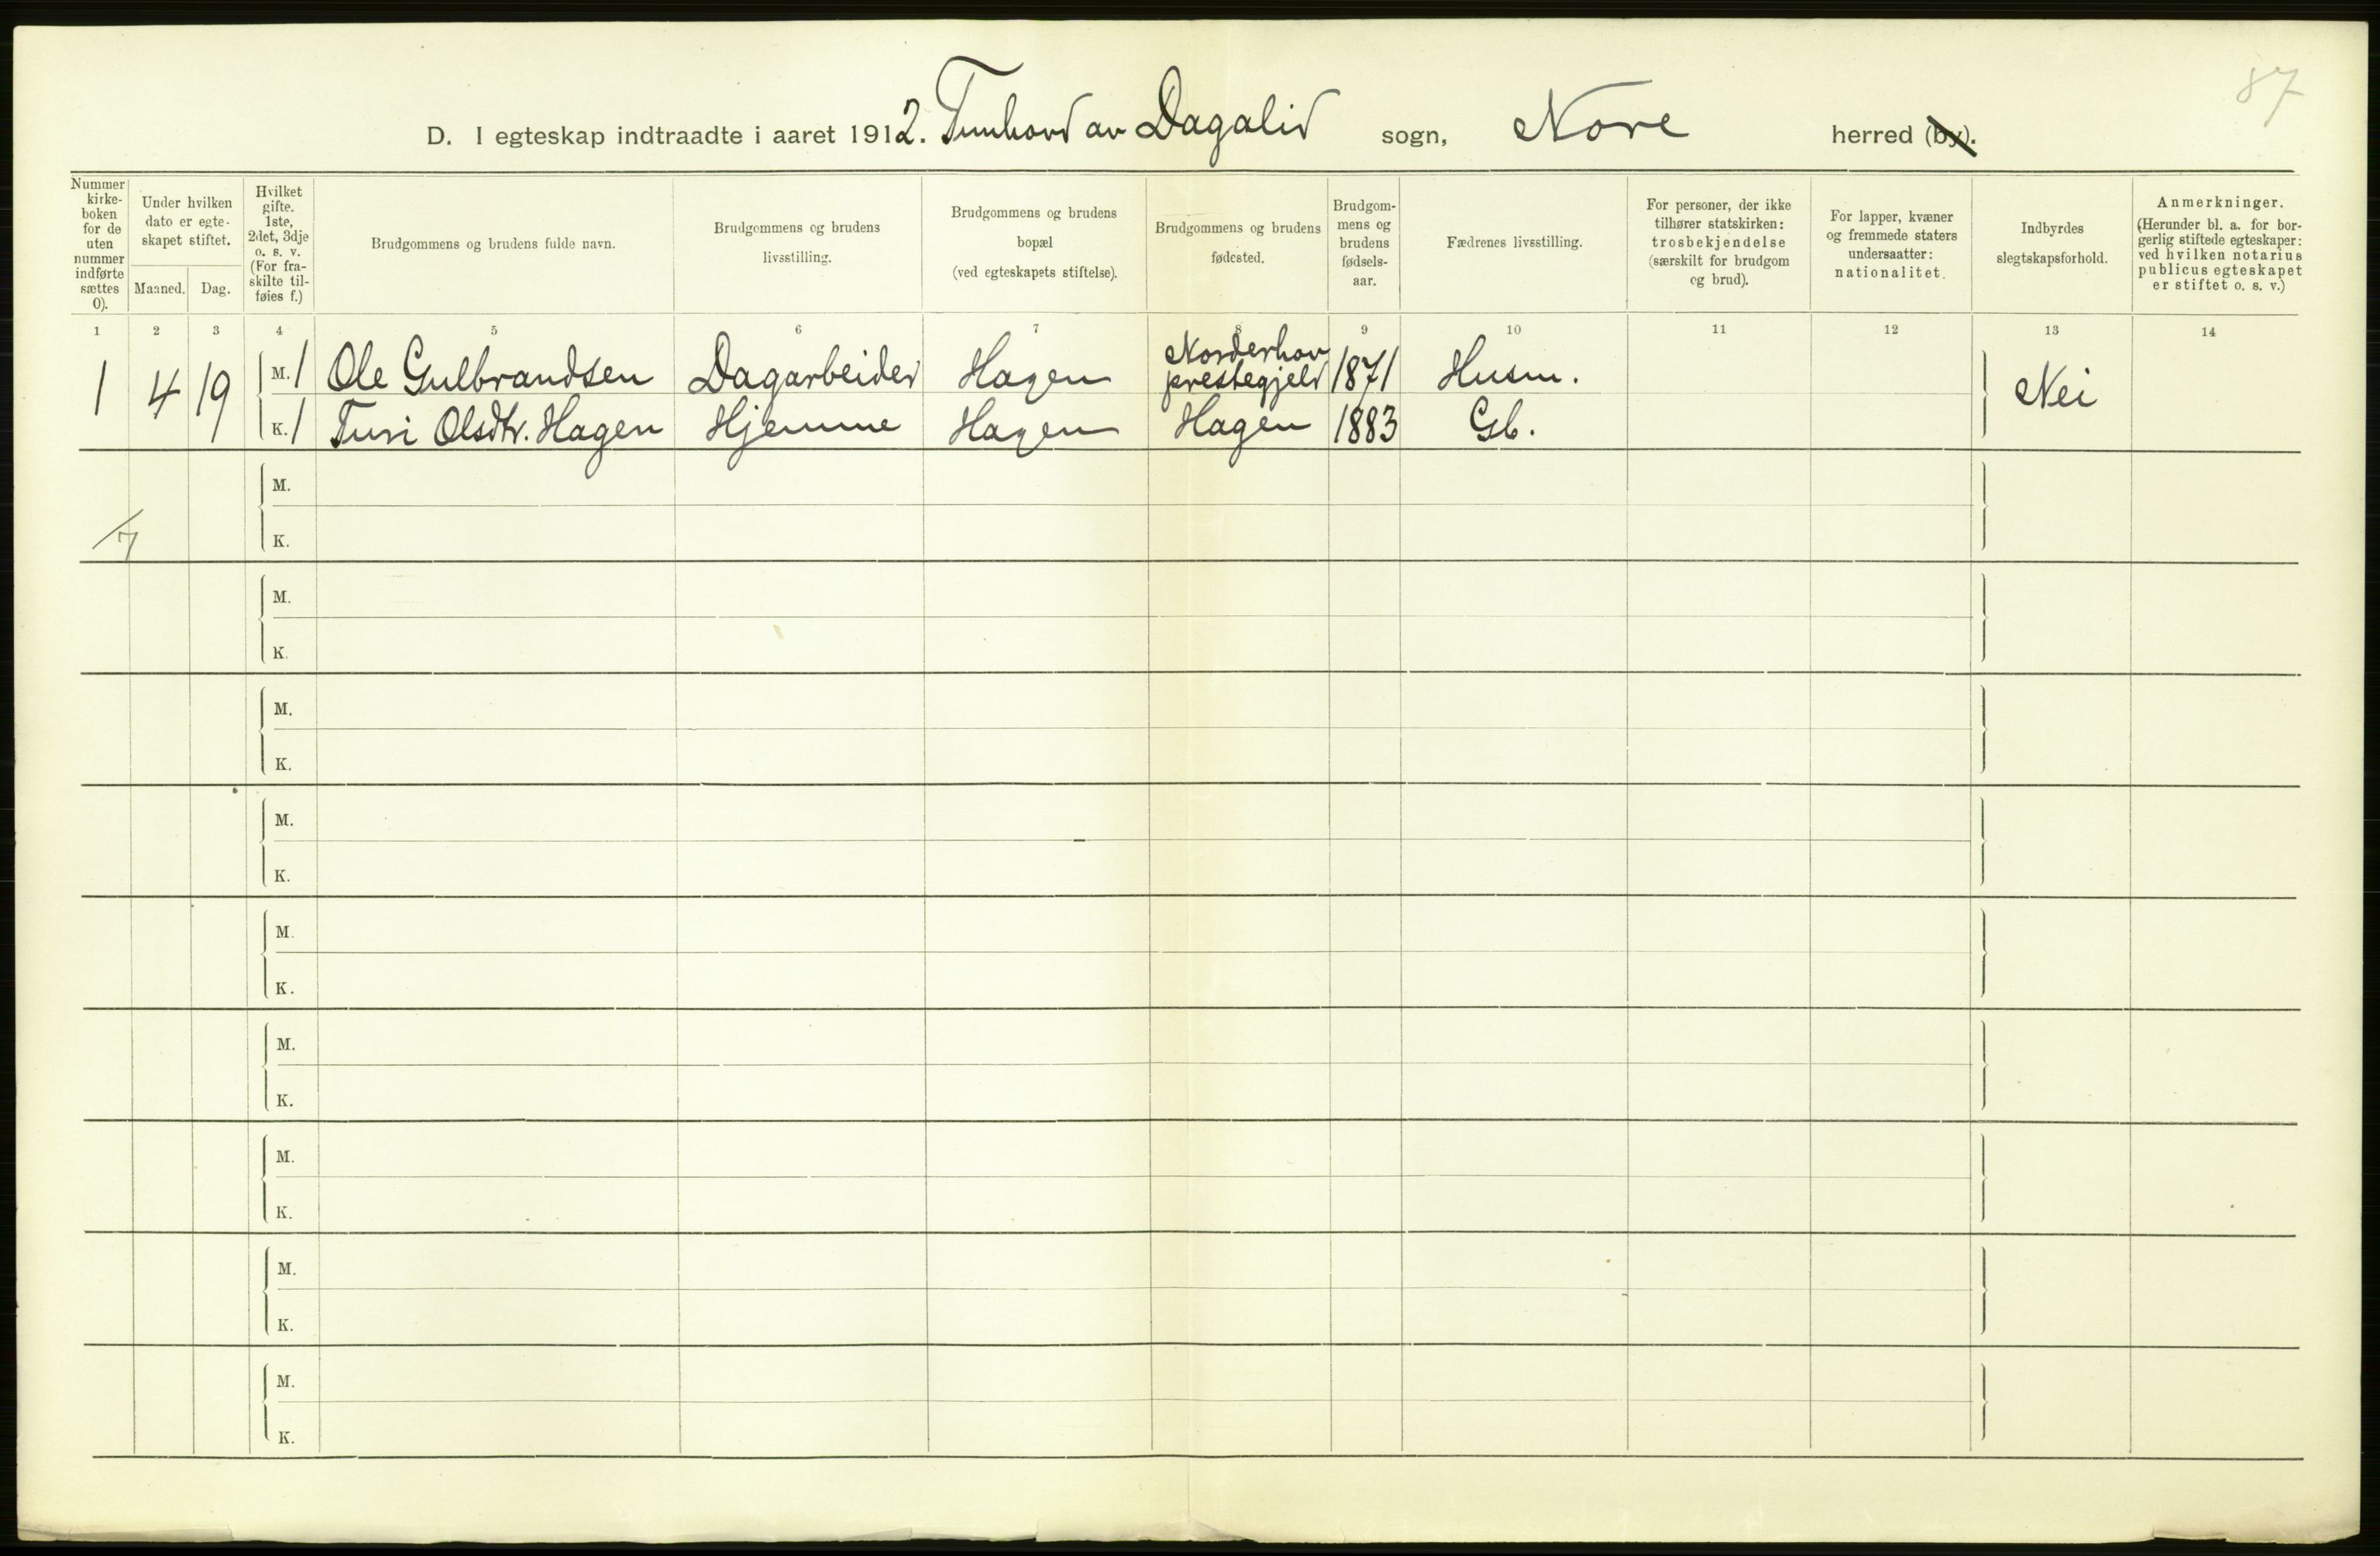 87
D. I egteskap indtraadte i aaret 1912. Tunhovd av Dagalid sogn, Nore herred (by).
Nummer kirke-boken for de uten nummer indførte sættes 0).
Under hvilken dato er egte-skapet stiftet.
Maaned. Dag.
Hvilket gifte. 1ste, 2det, 3dje o. s. v. (For fra-skilte til-føies f.)
Brudgommens og brudens fulde navn.
Brudgommens og brudens livsstilling.
Brudgommens og brudens bopæl (ved egteskapets stiftelse).
Brudgommens og brudens fødested.
Brudgom-mens og brudens fødsels-aar.
Fædrenes livsstilling.
For personer, der ikke tilhører statskirken: trosbekjendelse (særskilt for brudgom og brud).
For lapper, kvæner og fremmede staters undersaatter: nationalitet.
Indbyrdes slegtskapsforhold.
Anmerkninger. (Herunder bl. a. for bor-gerlig stiftede egteskaper: ved hvilken notarius publicus egteskapet er stiftet o. s. v.)
1 2 3 4 5 6 7 8 9 10 11 12 13 14
1 4 19 M. 1 Ole Gulbrandsen Dagarbeider Hagen Norderhov prestegjeld 1871 Husm. Nei
K. 1 Turi Olsdtr. Hagen Hjemme Hagen Hagen 1883 Gb.
M.
K.
M.
K.
M.
K.
M.
K.
M.
K.
M.
K.
M.
K.
M.
K.
M.
K.